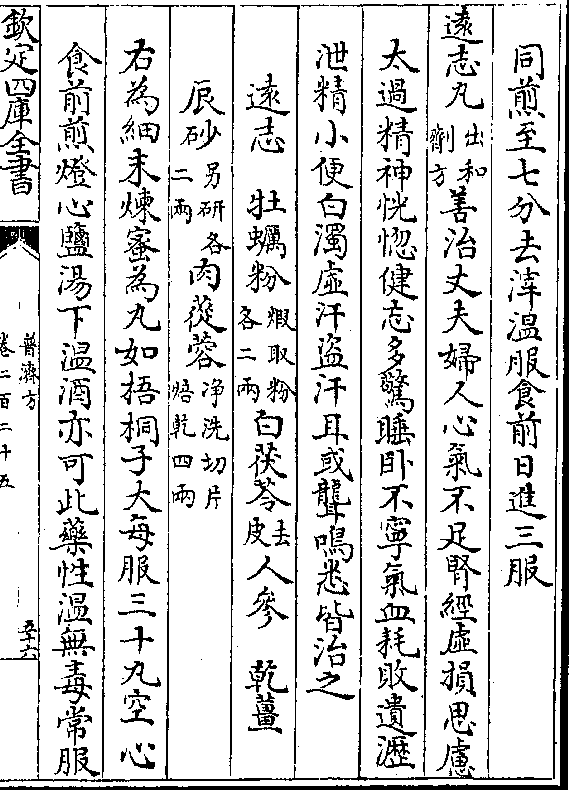 同煎至七分去滓温服食前日進三服
遠志丸出和劑方善治丈夫婦人心氣不足腎經虛損思慮
太過精神恍惚健忘多驚睡卧不寧氣血耗敗遺瀝
泄精小便白濁虛汗盗汗耳或聾鳴悉皆治之
遠志 牡蠣粉煆取粉各二兩 白茯苓去皮 人參 乾薑
辰砂另研各二兩 肉蓯蓉净洗切片焙乾四兩
右為細末煉蜜為丸如梧桐子大每服三十丸空心
食前煎燈心鹽湯下温酒亦可此藥性温無毒常服
欽定四庫全書
普濟方
卷二百二十五
五十六